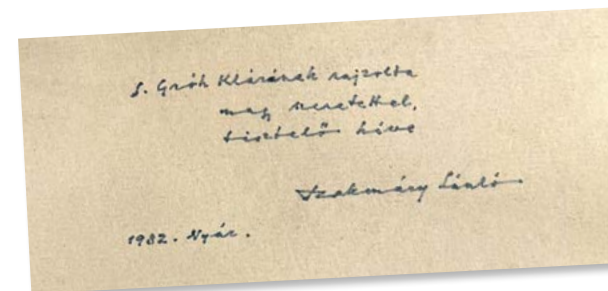 S. Gróh Klárának rajzolta
nagy szeretettel,
tisztelő híve
Szakmáry László
1982. Nyár.